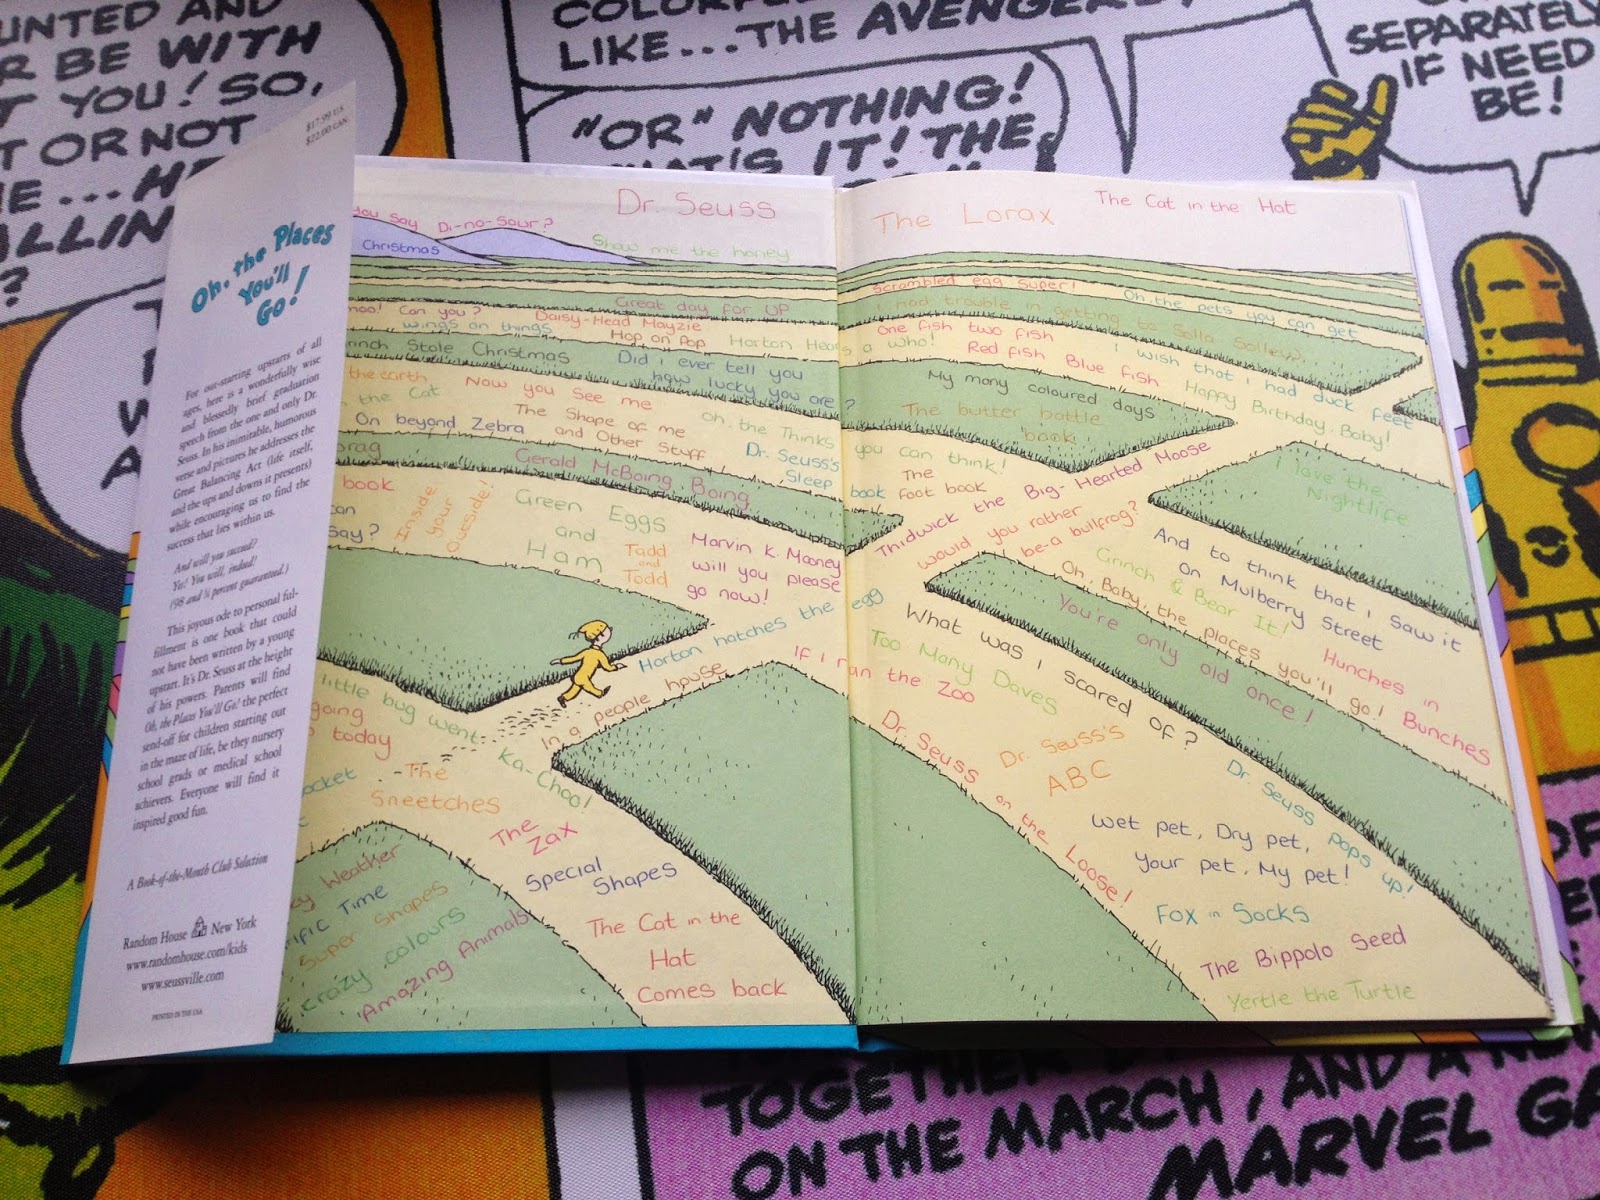 UNTED AND
R BE WITH
T YOU! SO,
T OR NOT
E...HE
ALLIN
?
LIKE...THE AVENGERS,
"OR" NOTHING!
THAT'S IT! THE
SEPARATELY
IF NEED
BE!
$17.99 US
$22.00 CAN
Oh, the Places
You'll
Go!
For out-starting upstarts of all
ages, here is a wonderfully wise
and blessedly brief graduation
speech from the one and only Dr.
Seuss. In his inimitable, humorous
verse and pictures he addresses the
Great Balancing Act (life itself,
and the ups and downs it presents)
while encouraging us to find the
success that lies within us.
And will you succeed?
Yes! You will, indeed!
(98 and ¾ percent guaranteed.)
This joyous ode to personal ful-
fillment is one book that could
not have been written by a young
upstart. It's Dr. Seuss at the height
of his powers. Parents will find
Oh, the Places You'll Go! the perfect
send-off for children starting out
in the maze of life, be they nursery
school grads or medical school
achievers. Everyone will find it
inspired good fun.
A Book-of-the-Month Club Selection
Random House New York
www.randomhouse.com/kids
www.seussville.com
PRINTED IN THE USA
Dr. Seuss
you say Di-no-saur?
Christmas
Show me the honey
Great day for UP
hoo! Can you?
Daisy-Head Mayzie
wings on things
Hop on Pop
Horton Hears a Who!
rinch Stole Christmas
Did i ever tell you
how lucky you are?
the earth
Now you See me
the Cat
The Shape of me
and Other Stuff
oh, the Thinks you can think!
On beyond Zebra
Dr. Seuss's
Sleep book
Gerald McBoing Boing
book
Inside
your
Outside!
Green Eggs
and
Ham
can
say?
Tadd
and
Todd
Marvin K. Mooney
will you please
go now!
Horton hatches the egg
In a people house
little bug went Ka-Choo!
going
today
ocket
The
Sneetches
The
Zax
Special
Shapes
Weather
ific Time
Super Shapes
Crazy colours
Amazing Animals
The Cat in the
Hat
Comes back
The Lorax
The Cat in the Hat
Scrambled egg super!
Oh, the pets you can get
I had trouble in getting to Solla Sollew
One fish two fish
Red fish Blue fish
I wish that i had duck feet
My many coloured days
Happy Birthday, Baby!
The butter battle
book
The
foot book
Thidwick the Big-Hearted Moose
I love the
Nightlife
would you rather
be a bullfrog?
And to think that i saw it
on Mulberry
Street
Grinch & Bear It!
Oh, Baby, the places you'll go!
You're only old once!
Hunches in
Bunches
What was i scared of?
Too Many Daves
If I ran the Zoo
Dr. Seuss on the Loose!
Dr. Seuss's
ABC
Dr. Seuss Pops up!
wet pet, Dry pet,
your pet, My pet!
Fox in Socks
The Bippolo Seed
Yertle the Turtle
TOGETHER
ON THE MARCH, AND A NEW
MARVEL GA